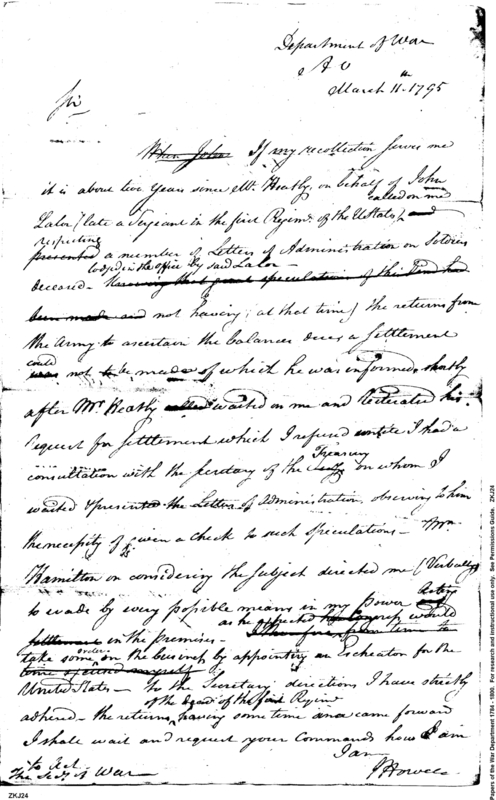 Department of War
A O
March 11th 1795
Sir
When John If my recollection serves me
it is about two years since Mr. Heatly, on behalf of John
called on me
Lalor (late a Serjeant in the first Regimt. of the U States) and
respecting
presented a number of Letters of Administration on Soldiers
lodged in the office by said Lalor
deceased - Knowing that great speculation of this kind had
been made and not having (at that time) the returns from
the Army to ascertain the balances due, a settlement
could
was not to be made of which he was informed, shortly
after Mr. Heatly called waited on me and reiterated his
request for settlement which I refused untile I had a
Treasury
consultation with the Secretary of the on whom I
waited & presented the Letters of Administration, observing to him
the necessity of given a check to such speculations - Mr.
Hamilton on considering the subject directed me (Verbally)
to evade by every possible means in my power
as he expected Congress would
settlement in the premises -
order
take some on the business by appointing an Escheator for the
United States - To the Secretary directions I have strictly
of the dead of the first Regim
adhered - the returns, having some time since came forward
I shale wait and request your Commands how I am
to act I am
The Secy. of War J Howell
ZKJ24
Papers of the War Department 1784 - 1800. For research and instructional use only. See Permissions Guide. ZKJ24